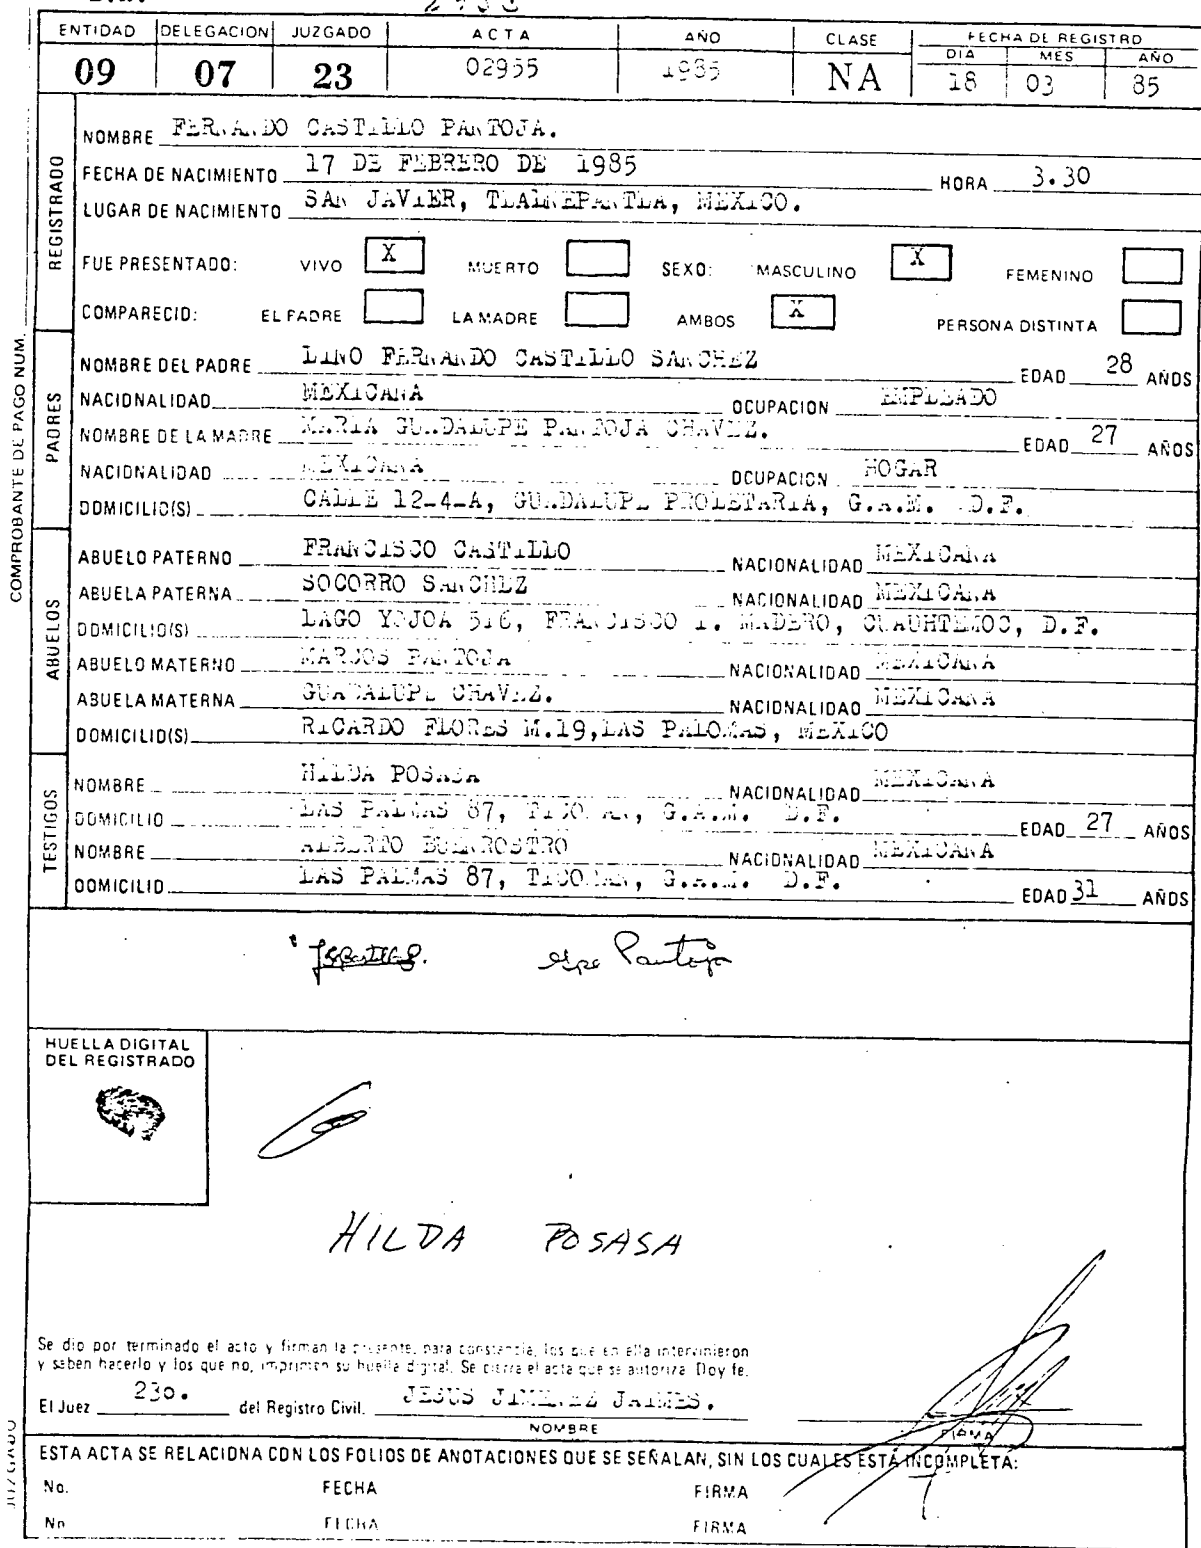 ENTIDAD DELEGACION JUZGADO ACTA AÑO CLASE FECHA DE REGISTRO
DIA MES AÑO
09 07 23 02955 1985 NA 18 03 85
REGISTRADO
NOMBRE FERNANDO CASTILLO PANTOJA.
FECHA DE NACIMIENTO 17 DE FEBRERO DE 1985 HORA 3.30
LUGAR DE NACIMIENTO SAN JAVIER, TLALNEPANTLA, MEXICO.
FUE PRESENTADO: VIVO X MUERTO SEXO: MASCULINO X FEMENINO
COMPARECIO: EL PADRE LA MADRE AMBOS X PERSONA DISTINTA
PADRES
NOMBRE DEL PADRE LINO FERNANDO CASTILLO SANCHEZ EDAD 28 AÑOS
NACIONALIDAD MEXICANA OCUPACION EMPLEADO
NOMBRE DE LA MADRE MARIA GUADALUPE PANTOJA CHAVEZ. EDAD 27 AÑOS
NACIONALIDAD MEXICANA OCUPACION HOGAR
DOMICILIO(S) CALLE 12-4-A, GUADALUPE PROLETARIA, G.A.M. D.F.
ABUELOS
ABUELO PATERNO FRANCISCO CASTILLO NACIONALIDAD MEXICANA
ABUELA PATERNA SOCORRO SANCHEZ NACIONALIDAD MEXICANA
DOMICILIO(S) LAGO YOJOA 516, FRANCISCO I. MADERO, CUAUHTEMOC, D.F.
ABUELO MATERNO MARCOS PANTOJA NACIONALIDAD MEXICANA
ABUELA MATERNA GUADALUPE CHAVEZ. NACIONALIDAD MEXICANA
DOMICILIO(S) RICARDO FLORES M.19,LAS PALOMAS, MEXICO
TESTIGOS
NOMBRE HILDA POSASA NACIONALIDAD MEXICANA
DOMICILIO LAS PALMAS 87, TICOMAN, G.A.M. D.F. EDAD 27 AÑOS
NOMBRE ALBERTO BUENROSTRO NACIONALIDAD MEXICANA
DOMICILIO LAS PALMAS 87, TICOMAN, G.A.M. D.F. EDAD 31 AÑOS
COMPROBANTE DE PAGO NUM.
Gpe Pantoja
HUELLA DIGITAL
DEL REGISTRADO
HILDA POSASA
Se dio por terminado el acto y firman la presente, para constancia, los que en ella intervinieron
y saben hacerlo y los que no, imprimen su huella digital. Se cierra el acta que se autoriza. Doy fe.
El Juez 23o. del Registro Civil. JESUS JIMENEZ JAIMES.
NOMBRE FIRMA
ESTA ACTA SE RELACIONA CON LOS FOLIOS DE ANOTACIONES QUE SE SEÑALAN, SIN LOS CUALES ESTÁ INCOMPLETA:
No. FECHA FIRMA
No FECHA FIRMA
JUZGADO